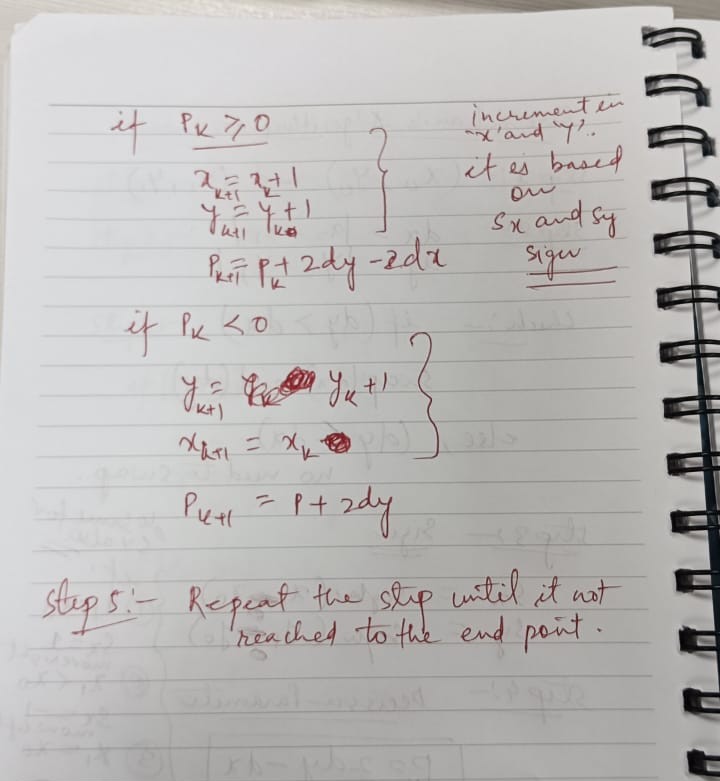 if Pk ≥ 0
xk+1 = xk + 1
yk+1 = yk + 1
Pk+1 = Pk + 2dy - 2dx
increment in
"x" and "y".
it is based
on
Sx and Sy
sign
if Pk < 0
yk+1 = yk + 1
xk+1 = xk
Pk+1 = P + 2dy
Step 5:- Repeat the step until it not
reached to the end point.